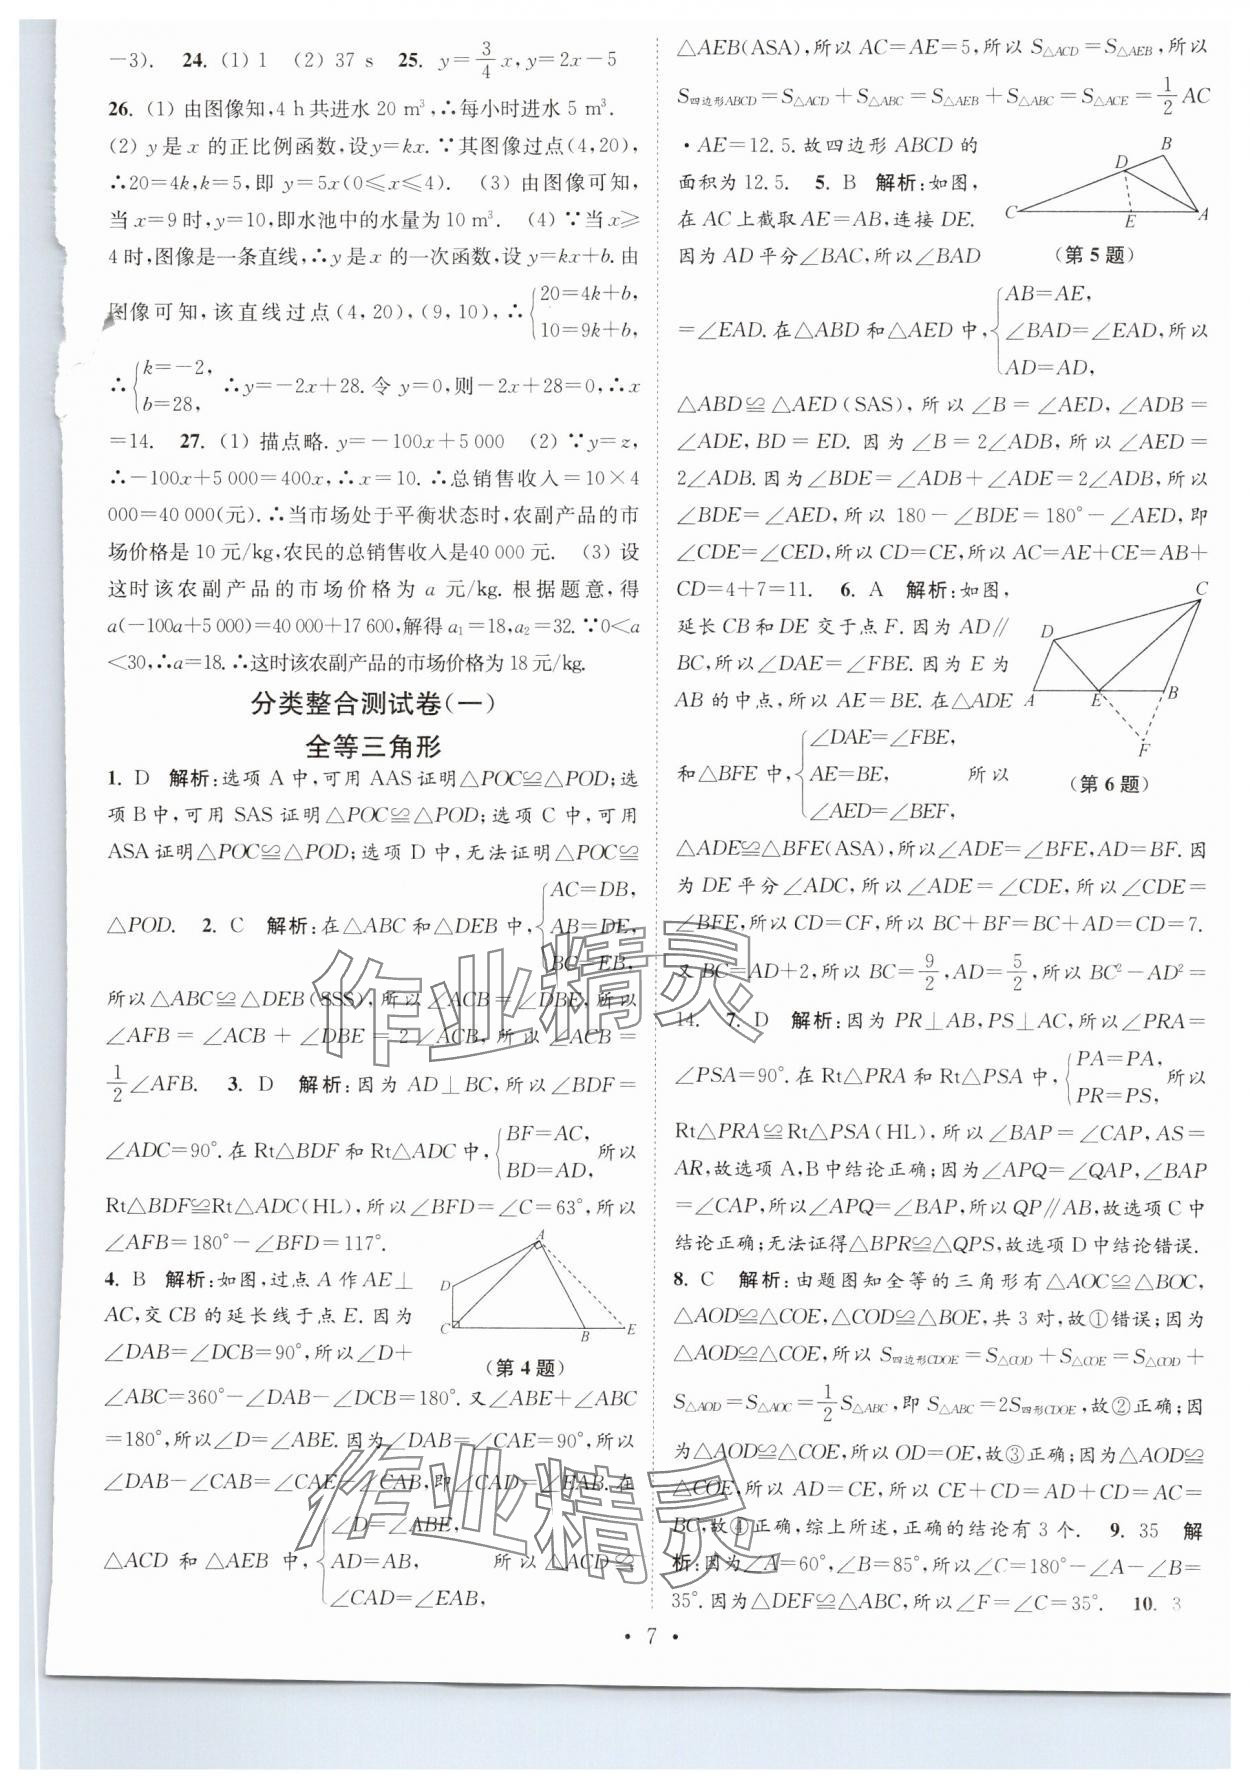 -3). 24. (1) 1 (2) 37 s 25. y=3/4 x, y=2x-5
26. (1) 由图像知,4 h共进水 20 m³,∴每小时进水 5 m³.
(2) y是 x 的正比例函数,设y=kx.∵其图像过点(4,20),
∴20=4k,k=5,即 y=5x(0≤x≤4). (3) 由图像可知,
当x=9时,y=10,即水池中的水量为10 m³. (4) ∵当x≥
4时,图像是一条直线,∴y是x 的一次函数,设 y=kx+b.由
图像可知,该直线过点(4,20),(9,10),∴{20=4k+b, 10=9k+b,
∴{k=-2, b=28, ∴y=-2x+28.令 y=0,则-2x+28=0,∴x
=14. 27. (1) 描点略. y=-100x+5 000 (2) ∵y=z,
∴-100x+5 000=400x,∴x=10.∴总销售收入=10×4
000=40 000(元).∴当市场处于平衡状态时,农副产品的市
场价格是 10 元/kg,农民的总销售收入是40 000 元. (3) 设
这时该农副产品的市场价格为 a 元/kg. 根据题意,得
a(-100a+5 000)=40 000+17 600,解得 a₁=18,a₂=32.∵0<a
<30,∴a=18.∴这时该农副产品的市场价格为18元/kg.
分类整合测试卷(一)
全等三角形
1. D 解析:选项 A 中,可用 AAS 证明△POC≌△POD;选
项 B中,可用 SAS 证明△POC≌△POD;选项 C 中,可用
ASA证明△POC≌△POD;选项 D 中,无法证明△POC≌
△POD. 2. C 解析:在△ABC 和△DEB 中,{AC=DB, AB=DE, BC=EB,
所以△ABC≌△DEB(SSS),所以∠ACB=∠DBE,所以
∠AFB = ∠ACB + ∠DBE = 2∠ACB, 所以 ∠ACB =
1/2∠AFB. 3. D 解析:因为 AD⊥BC,所以∠BDF=
∠ADC=90°.在 Rt△BDF 和 Rt△ADC 中,{BF=AC, BD=AD, 所以
Rt△BDF≌Rt△ADC(HL),所以∠BFD=∠C=63°,所以
∠AFB=180°-∠BFD=117°.
4. B 解析:如图,过点 A 作AE⊥
AC,交 CB 的延长线于点 E. 因为
∠DAB=∠DCB=90°,所以∠D+
A
D
C
B
E
(第4题)
∠ABC=360°-∠DAB-∠DCB=180°.又∠ABE+∠ABC
=180°,所以∠D=∠ABE.因为∠DAB=∠CAE=90°,所以
∠DAB-∠CAB=∠CAE-∠CAB,即∠CAD=∠EAB.在
△ACD 和 △AEB 中,{∠D=∠ABE, AD=AB, ∠CAD=∠EAB, 所以 △ACD≌
△AEB(ASA),所以 AC=AE=5,所以 S△ACD=S△AEB,所以
S四边形ABCD=S△ACD+S△ABC=S△AEB+S△ABC=S△ACE=1/2 AC
·AE=12.5.故四边形 ABCD 的
面积为12.5. 5. B 解析:如图,
在 AC上截取AE=AB,连接 DE.
因为 AD 平分∠BAC,所以∠BAD
B
D
C
E
A
(第5题)
=∠EAD.在△ABD 和△AED 中,{AB=AE, ∠BAD=∠EAD, AD=AD, 所以
△ABD≌△AED(SAS),所以∠B=∠AED,∠ADB=
∠ADE,BD=ED. 因为∠B=2∠ADB,所以∠AED=
2∠ADB.因为∠BDE=∠ADB+∠ADE=2∠ADB,所以
∠BDE=∠AED,所以 180-∠BDE=180°-∠AED,即
∠CDE=∠CED,所以CD=CE,所以 AC=AE+CE=AB+
CD=4+7=11. 6. A 解析:如图,
延长 CB和DE 交于点F.因为 AD∥
BC,所以∠DAE=∠FBE.因为 E 为
AB 的中点,所以 AE=BE. 在△ADE
和△BFE 中,{∠DAE=∠FBE, AE=BE, ∠AED=∠BEF, 所以
C
D
A
E
B
F
(第6题)
△ADE≌△BFE(ASA),所以∠ADE=∠BFE,AD=BF.因
为 DE平分∠ADC,所以∠ADE=∠CDE,所以∠CDE=
∠BFE,所以CD=CF,所以 BC+BF=BC+AD=CD=7.
又 BC=AD+2,所以 BC=9/2,AD=5/2,所以 BC²-AD²=
14. 7. D 解析:因为 PR⊥AB,PS⊥AC,所以∠PRA=
∠PSA=90°.在 Rt△PRA 和 Rt△PSA 中,{PA=PA, PR=PS, 所以
Rt△PRA≌Rt△PSA(HL),所以∠BAP=∠CAP,AS=
AR,故选项 A,B中结论正确;因为∠APQ=∠QAP,∠BAP
=∠CAP,所以∠APQ=∠BAP,所以QP∥AB,故选项 C 中
结论正确;无法证得△BPR≌△QPS,故选项D中结论错误.
8. C 解析:由题图知全等的三角形有△AOC≌△BOC,
△AOD≌△COE,△COD≌△BOE,共 3 对,故①错误;因为
△AOD≌△COE,所以 S四边形CDOE=S△COD+S△COE=S△COD+
S△AOD=S△AOC=1/2S△ABC,即 S△ABC=2S四形CDOE,故②正确;因
为△AOD≌△COE,所以 OD=OE,故③正确;因为△AOD≌
△COE,所以 AD=CE,所以 CE+CD=AD+CD=AC=
BC,故④正确,综上所述,正确的结论有 3 个. 9. 35 解
析:因为∠A=60°,∠B=85°,所以∠C=180°-∠A-∠B=
35°.因为△DEF≌△ABC,所以∠F=∠C=35°. 10. 3
· 7 ·
作业精灵
作业精灵